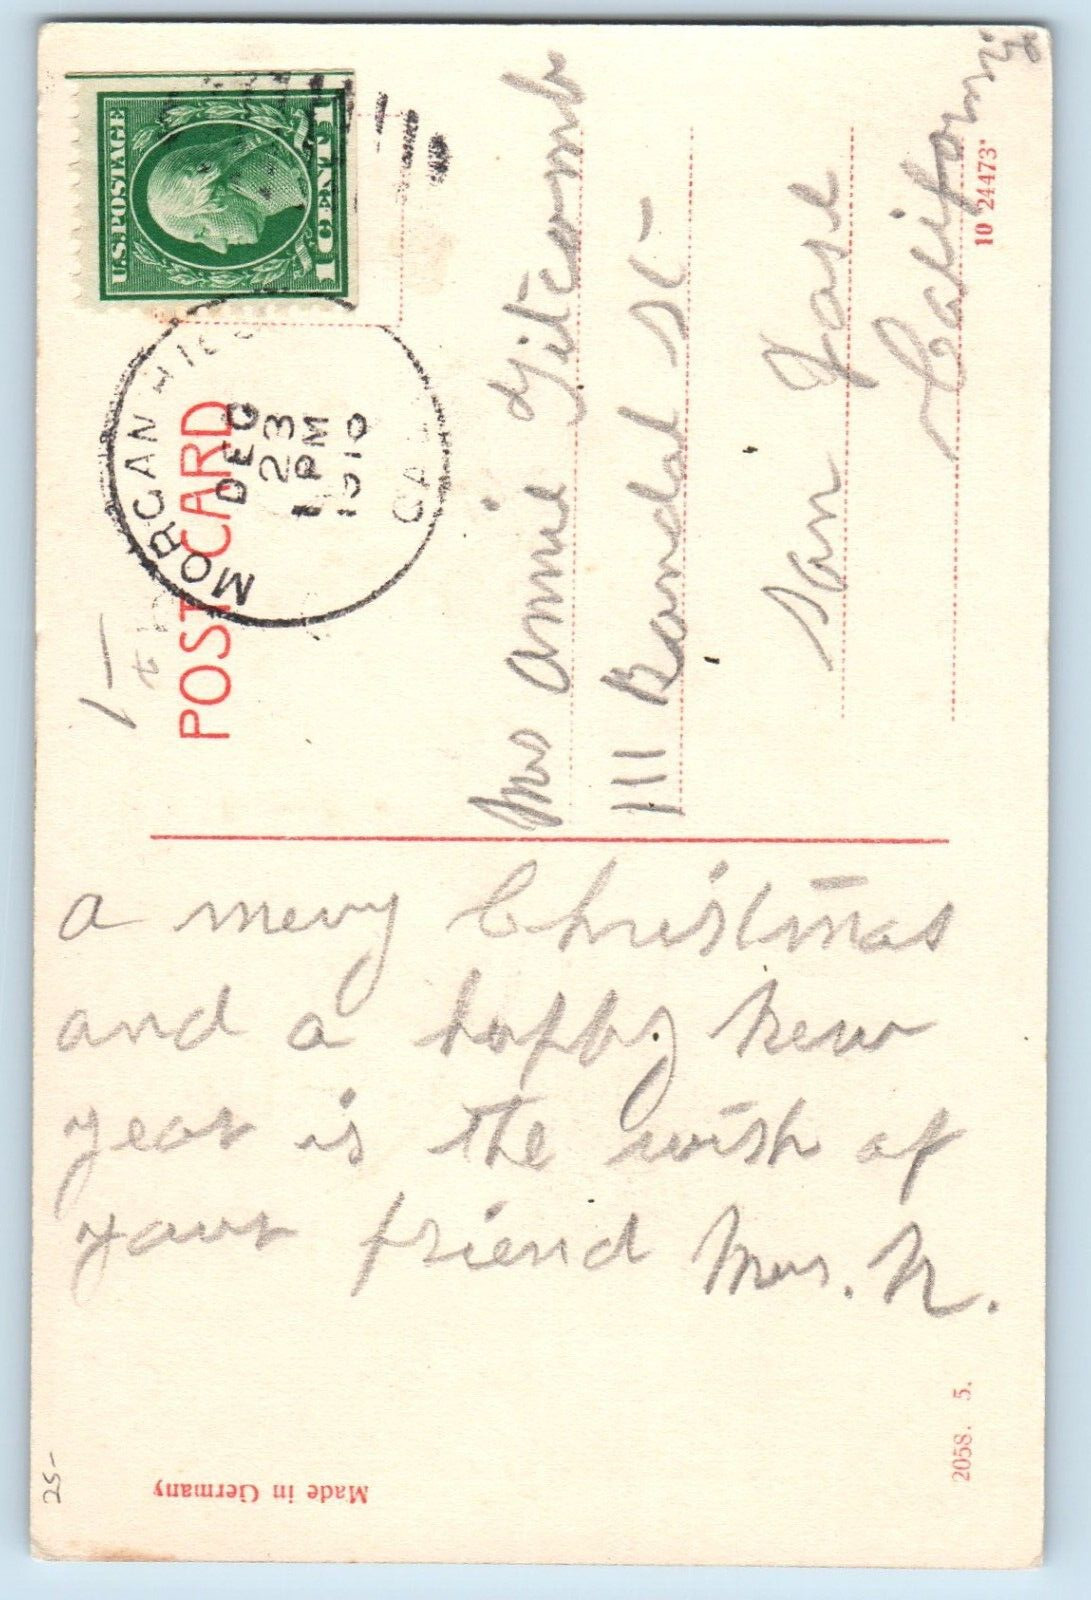 U.S. POSTAGE
1 CENT 1
MORGAN HILL
DEC
23
1 PM
1910
CA
POST CARD
Mrs Annie Titcomb
111 Randal St-
San Jose
California
10 24473*
a merry Christmas
and a happy New
year is the wish of
your friend Mrs. N.
25-
Made in Germany
2058. 5.